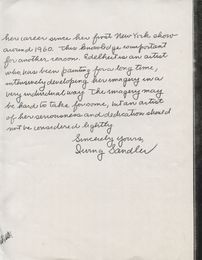 her career since her first New York show
around 1960. This knowledge is important
for another reason. Edelheit is an artist
who has been painting for a long time,
intensively developing her imagery in a
very individual way. The imagery may
be hard to take for some, but an artist
of her seriousness and dedication should
not be considered lightly.
Sincerely yours,
Irving Sandler